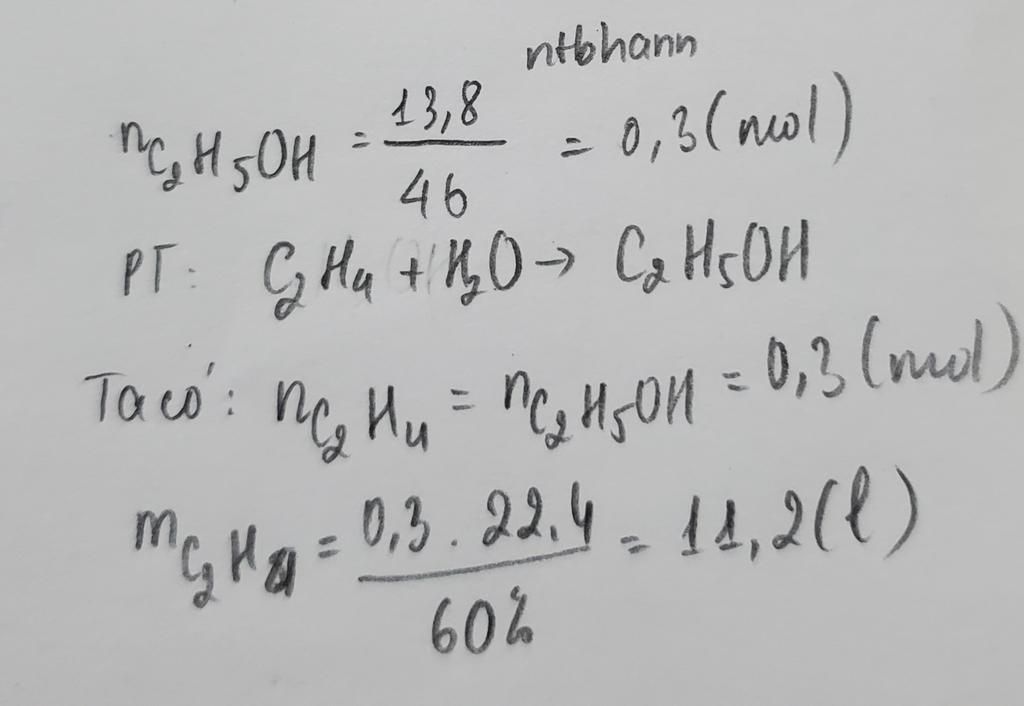 ntbhann
nC₂H₅OH = 13,8 / 46 = 0,3 (mol)
PT: C₂H₄ + H₂O → C₂H₅OH
Ta có: nC₂H₄ = nC₂H₅OH = 0,3 (mol)
mC₂H₄ = 0,3 . 22.4 / 60% = 11,2 (l)